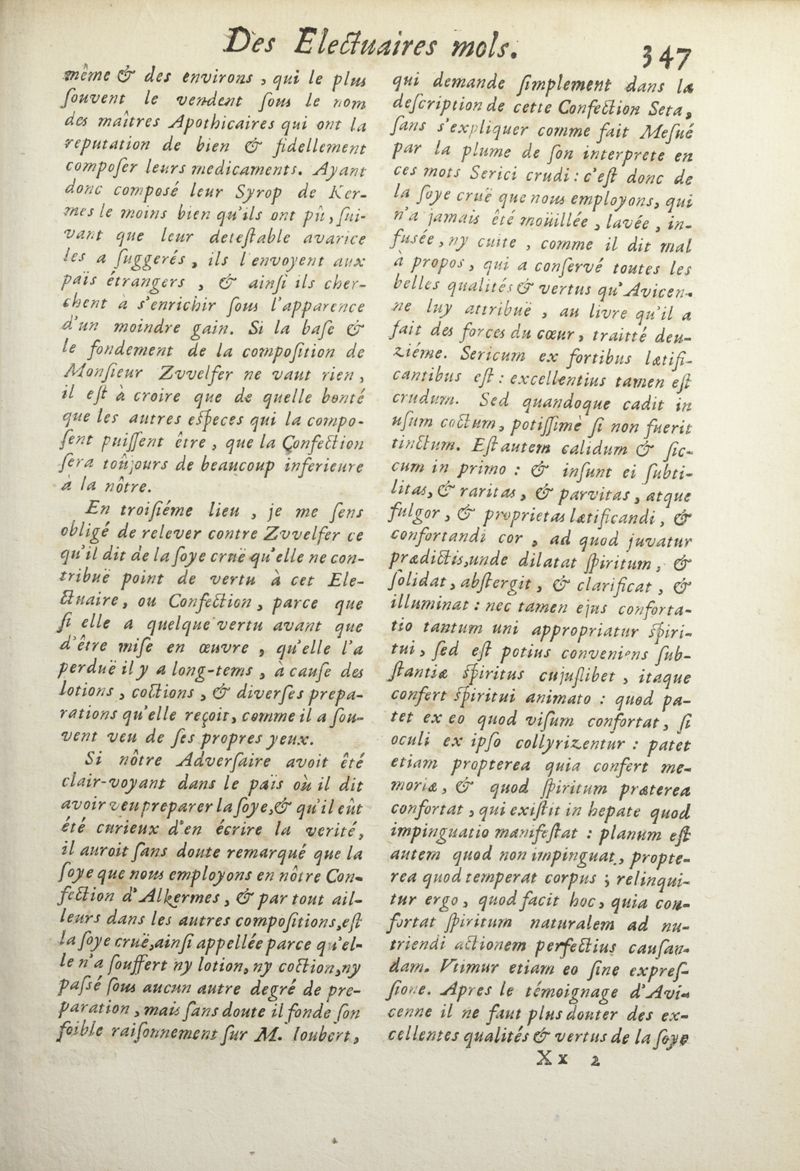 Des Electuaires mols. 347
même & des environs, qui le plus
souvent le vendent sous le nom
des maîtres Apothicaires qui ont la
reputation de bien & fidellement
composer leurs medicaments. Ayant
donc composé leur Syrop de Ker-
mes le moins bien qu'ils ont pû, sui-
vant que leur detestable avarice
les a suggerés, ils l'envoyent aux
païs étrangers, & ainsi ils cher-
chent à s'enrichir sous l'apparence
d'un moindre gain. Si la base &
le fondement de la composition de
Monsieur Zvvelfer ne vaut rien,
il est à croire que de quelle bonté
que les autres especes qui la compo-
sent puissent être, que la Confection
sera toûjours de beaucoup inferieure
à la nôtre.
En troisiéme lieu, je me sens
obligé de relever contre Zvvelfer ce
qu'il dit de la soye cruë qu'elle ne con-
tribuë point de vertu à cet Ele-
ctuaire, ou Confection, parce que
si elle a quelque vertu avant que
d'être mise en œuvre, qu'elle l'a
perduë il y a long-tems, à cause des
lotions, coctions, & diverses prepa-
rations qu'elle reçoit, comme il a sou-
vent veu de ses propres yeux.
Si nôtre Adversaire avoit été
clair-voyant dans le païs où il dit
avoir veu preparer la soye, & qu'il eût
été curieux d'en écrire la verité,
il auroit sans doute remarqué que la
soye que nous employons en nôtre Con-
fection d'Alkermes, & par tout ail-
leurs dans les autres compositions, est
la soye cruë, ainsi appellée parce qu'el-
le n'a souffert ny lotion, ny coction, ny
passé sous aucun autre degré de pre-
paration, mais sans doute il fonde son
foible raisonnement sur M. Ioubert,
qui demande simplement dans la
description de cette Confection Seta,
sans s'expliquer comme fait Mesué
par la plume de son interprete en
ces mots Serici crudi : c'est donc de
la soye cruë que nous employons, qui
n'a jamais été moüillée, lavée, in-
fusée, ny cuite, comme il dit mal
à propos, qui a conservé toutes les
belles qualités & vertus qu'Avicen-
ne luy attribuë, au livre qu'il a
fait des forces du cœur, traitté deu-
ziéme. Sericum ex fortibus lætifi-
cantibus est : excellentius tamen est
crudum. Sed quandoque cadit in
usum coctum, potissime si non fuerit
tinctum. Est autem calidum & sic-
cum in primo : & insunt ei subti-
litas, & raritas, & parvitas, atque
fulgor, & proprietas lætificandi, &
confortandi cor, ad quod juvatur
prædictis, unde dilatat spiritum, &
solidat, abstergit, & clarificat, &
illuminat : nec tamen ejus conforta-
tio tantum uni appropriatur spiri-
tui, sed est potius conveniens sub-
stantiæ spiritus cujuslibet, itaque
confert spiritui animato : quod pa-
tet ex eo quod visum confortat, si
oculi ex ipso collyrizentur : patet
etiam propterea quia confert me-
moriæ, & quod spiritum præterea
confortat, qui existit in hepate quod
impinguatio manifestat : planum est
autem quod non impinguat, propte-
rea quod temperat corpus ; relinqui-
tur ergo, quod facit hoc, quia con-
fortat spiritum naturalem ad nu-
triendi actionem perfectius causan-
dam. Vtimur etiam eo sine expres-
sione. Apres le témoignage d'Avi-
cenne il ne faut plus douter des ex-
cellentes qualités & vertus de la soye
Xx 2